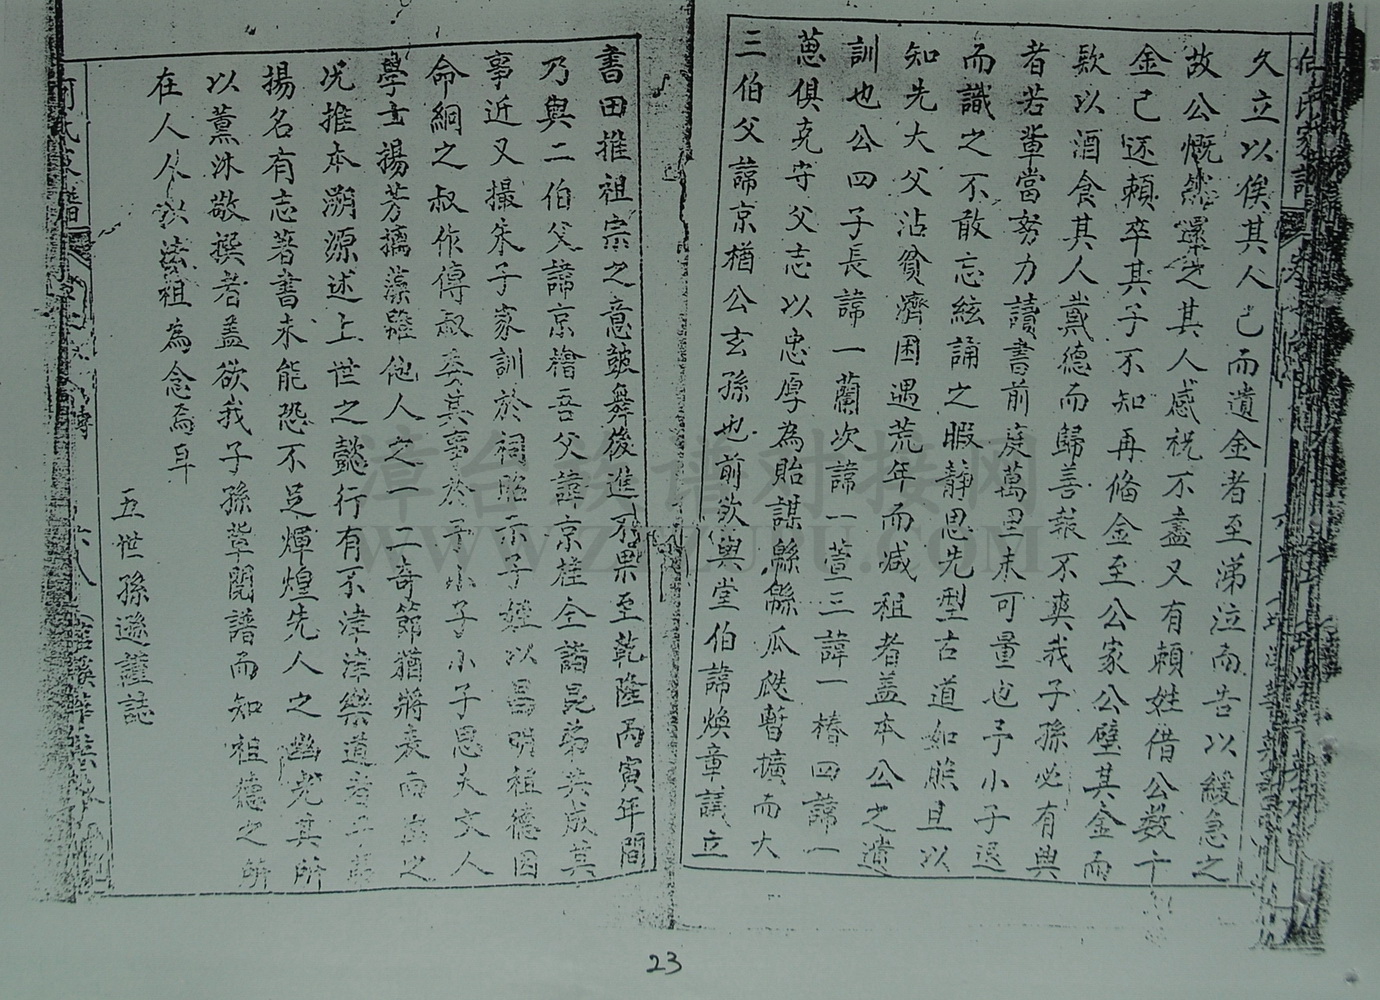 久立以俟其人已而遺金者至涕泣而告以緩急之
故公慨然還之其人感祝不盡又有賴姓借公数十
金己还賴卒其子不知再偹金至公家公璧其金而
欵以酒食其人戴德而歸善報不爽我子孫必有與
者若輩當努力讀書前庭萬里未可量也予小子退
而識之不敢忘絃誦之暇静思先型古道如照且以
知先大父沾貧濟困遇荒年而减租者盖本公之遺
訓也公四子長諱一蘭次諱一萱三諱一椿四諱一
蒽俱克守父志以忠厚為貽謀緜緜瓜瓞暫擴而大
三伯父諱京楢公玄孫也前欲與堂伯諱煥章議立
書田推祖宗之意皷舞後進不果至乾隆丙寅年間
乃與二伯父諱京檜吾父諱京桂仝諸昆弟共成其
事近又撮朱子家訓於祠昭示子姓以昌明祖德因
命絅之叔作傳叔委其事於予小子小子思夫文人
學士揚芳摛藻雖他人之一二奇節猶將表而
况推本溯源述上世之懿行有不津津樂道者
揚名有志著書未能恐不足煇煌先人之幽光其所
以薰沐敬撰者盖欲我子孫輩閱譜而知祖德之
在人人以法祖為念焉耳
五世孫遜謹誌
漳台族谱对接网
WWW.ZTZUPU.COM
23